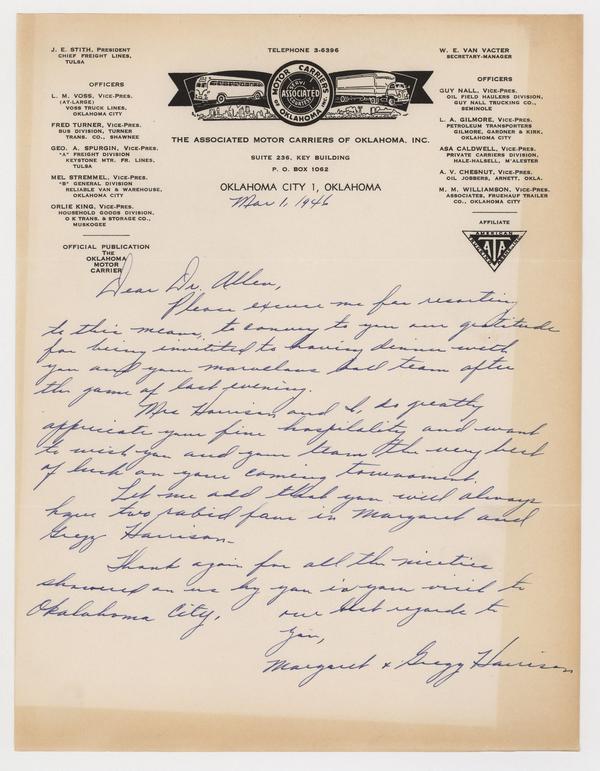 J. E. STITH, PRESIDENT
CHIEF FREIGHT LINES,
TULSA
OFFICERS
L. M. VOSS, VICE-PRES.
(AT-LARGE)
VOSS TRUCK LINES,
OKLAHOMA CITY
FRED TURNER, VICE-PRES.
BUS DIVISION, TURNER
TRANS. CO., SHAWNEE
GEO. A. SPURGIN, VICE-PRES.
"A" FREIGHT DIVISION
KEYSTONE MTR. FR. LINES,
TULSA
MEL STREMMEL, VICE-PRES.
"B" GENERAL DIVISION
RELIABLE VAN & WAREHOUSE,
OKLAHOMA CITY
ORLIE KING, VICE-PRES.
HOUSEHOLD GOODS DIVISION,
O K TRANS. & STORAGE CO.,
MUSKOGEE
OFFICIAL PUBLICATION
THE
OKLAHOMA
MOTOR
CARRIER
TELEPHONE 3-6396
MOTOR CARRIERS
ASSOCIATED
OF OKLAHOMA, INC.
THE ASSOCIATED MOTOR CARRIERS OF OKLAHOMA, INC.
SUITE 236, KEY BUILDING
P. O. BOX 1062
OKLAHOMA CITY 1, OKLAHOMA
W. E. VAN VACTER
SECRETARY-MANAGER
OFFICERS
GUY NALL, VICE-PRES.
OIL FIELD HAULERS DIVISION,
GUY NALL TRUCKING CO.,
SEMINOLE
L. A. GILMORE, VICE-PRES.
PETROLEUM TRANSPORTERS
GILMORE, GARDNER & KIRK,
OKLAHOMA CITY
ASA CALDWELL, VICE-PRES.
PRIVATE CARRIERS DIVISION,
HALE-HALSELL, M'ALESTER
A. V. CHESNUT, VICE-PRES.
OIL JOBBERS, ARNETT, OKLA.
M. M. WILLIAMSON, VICE-PRES.
ASSOCIATES, FRUEHAUF TRAILER
CO., OKLAHOMA CITY
AFFILIATE
AMERICAN
ATA
Mar 1, 1946
Dear Dr. Allen,
Please excuse me for resorting
to this means, to convey to you our gratitude
for being invitited to having dinner with
you and your marvelous ball team after
the game of last evening.
Mrs Harrison and I, do greatly
appriciate your fine hospitality and want
to wish you and your team the very best
of luck on your coming tournament.
Let me add that you will always
have two rabid fans in Margaret and
Gregg Harrison-
Thank again for all the niceties
showered on us by you in your visit to
Okalahoma City.
our best regards to
you,
Margaret & Gregg Harrison